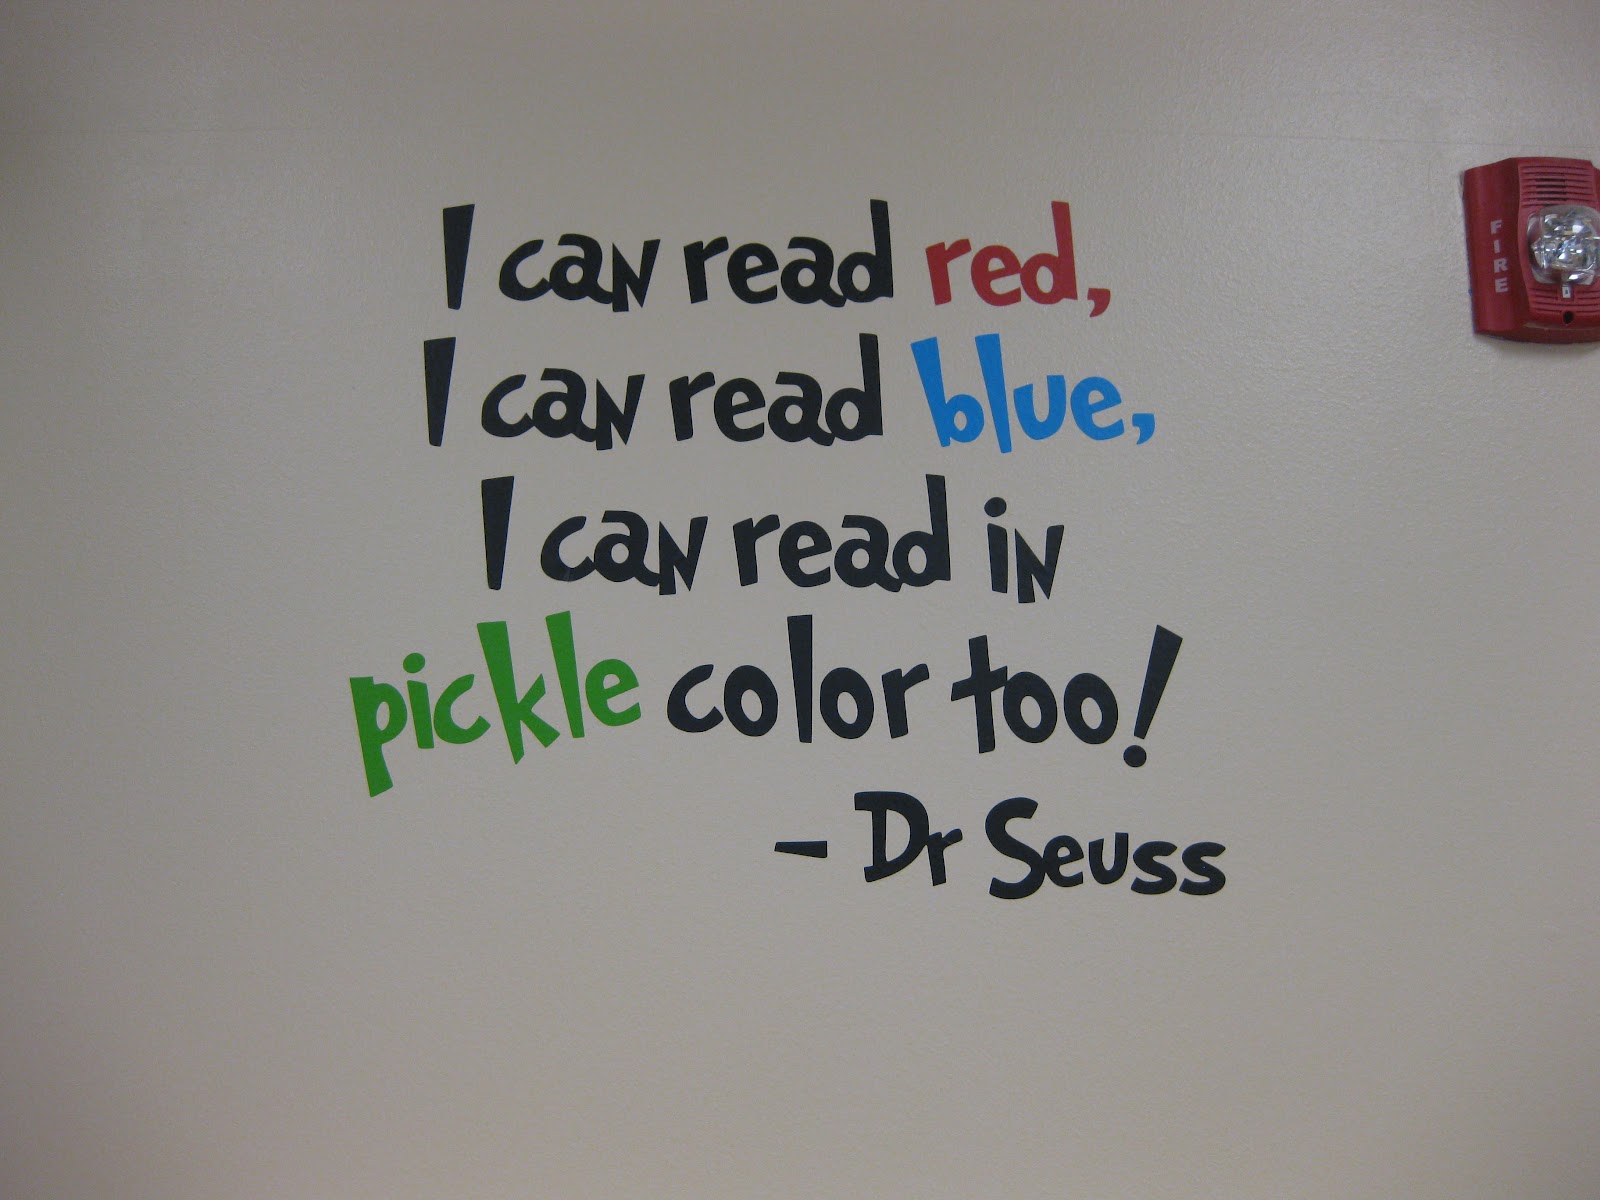 I can read red,
I can read blue,
I can read in
pickle color too!
- Dr Seuss
FIRE